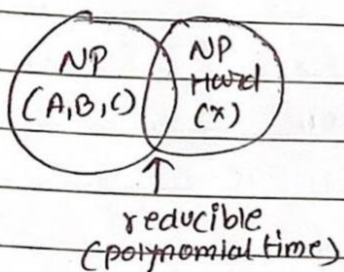 NP
(A,B,C)
NP
Hard
(x)
reducible
(polynomial time)